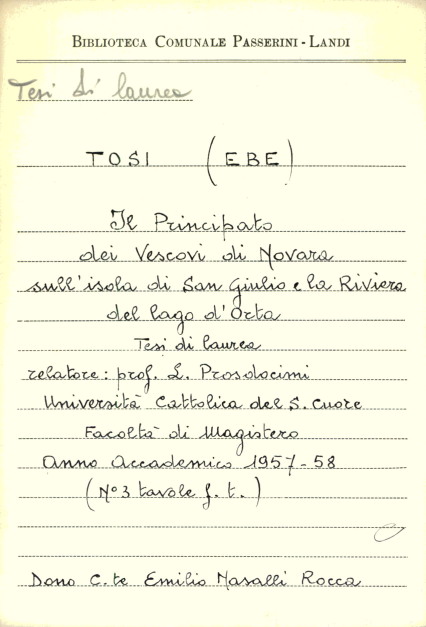 BIBLIOTECA COMUNALE PASSERINI - LANDI
Tesi di laurea
TOSI (EBE)
Il Principato
dei Vescovi di Novara
sull'isola di San Giulio e la Riviera
del lago d'Orta
Tesi di laurea
relatore: prof. L. Prosdocimi
Università Cattolica del S. Cuore
Facoltà di Magistero
Anno Accademico 1957-58
(N° 3 tavole f. t.)
Dono C.te Emilio Nasalli Rocca